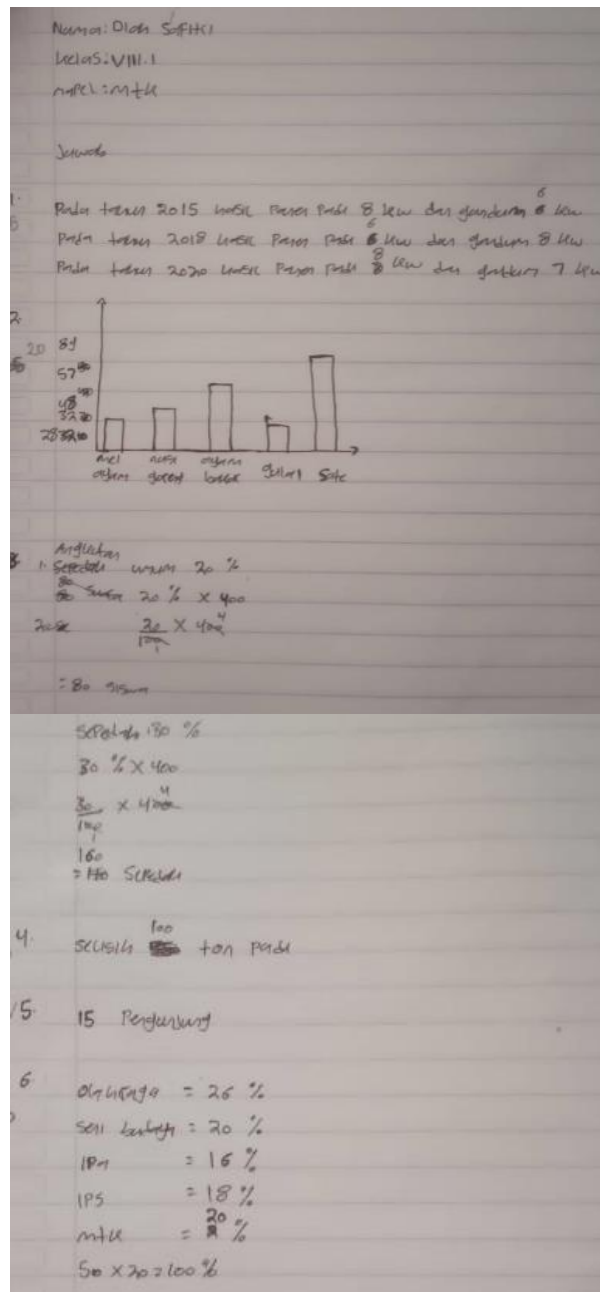 Nama: Diah Safitri
kelas: VIII.1
mapel: mtk
Jawab
1. Pada tahun 2015 hasil Panen Padi 8 kw dan gandum 6 kw
Pada tahun 2018 hasil Panen Padi 6 kw dan gandum 8 kw
Pada tahun 2020 hasil Panen Padi 8 kw dan gandum 7 kw
2.
20 81
57
48
32
28
mei ayam
nasi goreng
ayam bakar
gulai
Sate
3. 1. Angkutan umum 20 %
20 % X 400
20/100 X 400 4
= 80 siswa
Sepeda 30 %
30 % X 400
30/100 X 400 4
160
= Sepeda
4. selisih 100 ton padi
5. 15 Pengunjung
6. Olahraga = 26 %
Seni budaya = 20 %
IPA = 16 %
IPS = 18 %
mtk = 20 %
50 X 20 = 100 %